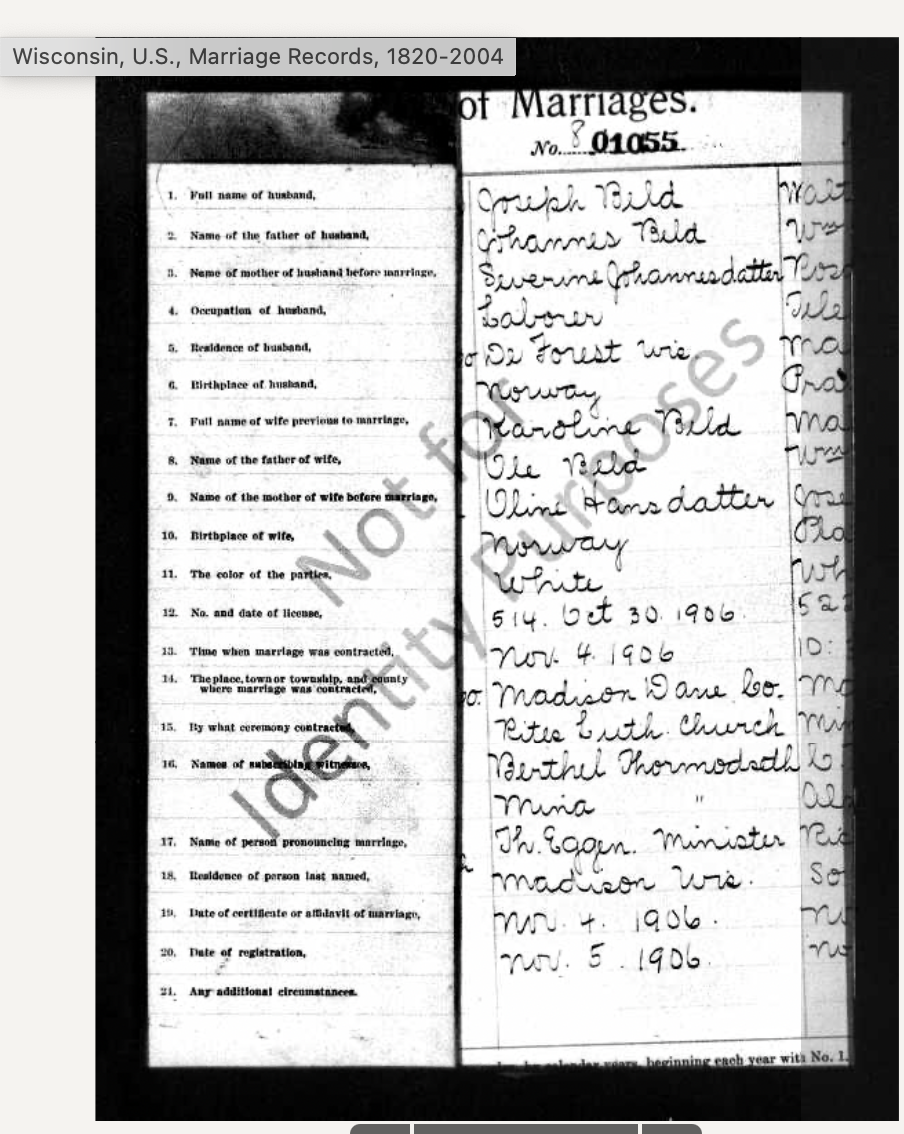 Wisconsin, U.S., Marriage Records, 1820-2004
of Marriages.
No. 8 01055
1. Full name of husband, Joseph Bild
2. Name of the father of husband, Johannes Bild
3. Name of mother of husband before marriage, Severine Johannesdatter
4. Occupation of husband, Laborer
5. Residence of husband, De Forest Wis.
6. Birthplace of husband, Norway
7. Full name of wife previous to marriage, Karoline Bild
8. Name of the father of wife, Ole Bild
9. Name of the mother of wife before marriage, Oline Hansdatter
10. Birthplace of wife, Norway
11. The color of the parties, White
12. No. and date of license, 514. Oct 30. 1906.
13. Time when marriage was contracted, Nov. 4. 1906
14. The place, town or township, and county
where marriage was contracted, Madison Dane Co.
15. By what ceremony contracted, Rites Luth. Church
16. Names of subscribing witnesses, Berthel
Mina "
17. Name of person pronouncing marriage, Th. Eggen. Minister
18. Residence of person last named, Madison Wis.
19. Date of certificate or affidavit of marriage, Nov. 4. 1906.
20. Date of registration, Nov. 5. 1906.
21. Any additional circumstances.
calendar years, beginning each year with No. 1.
Not for
Identity Purposes